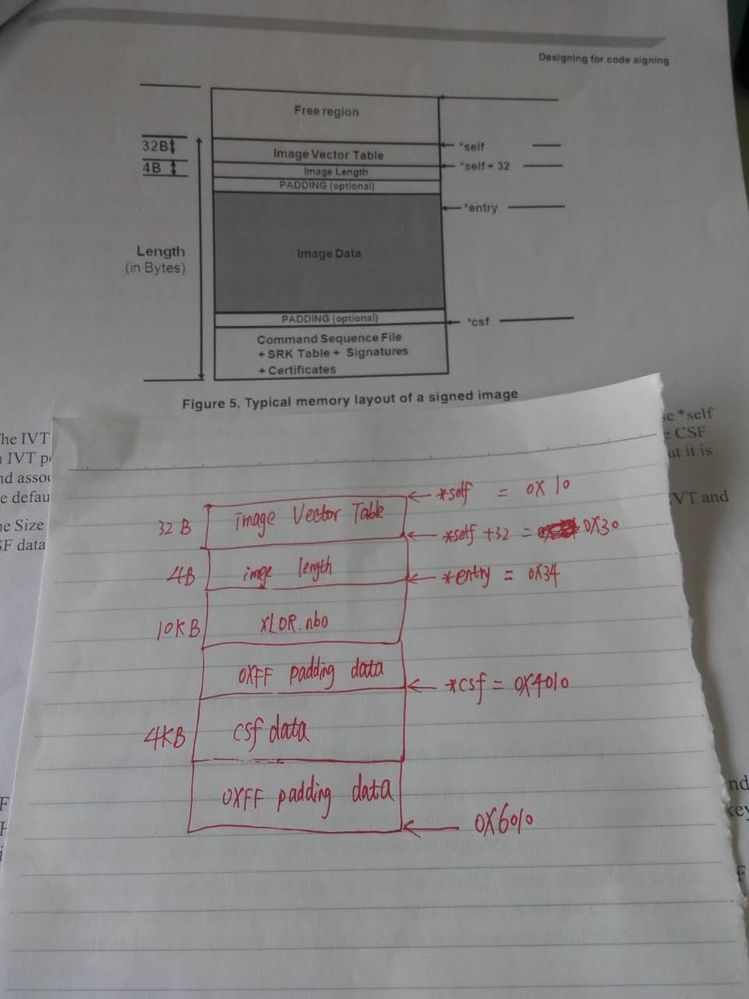 Designing for code signing
Free region
32B
*self
Image Vector Table
4B
*self + 32
Image Length
PADDING (optional)
*entry
Length
(in Bytes)
Image Data
PADDING (optional)
*csf
Command Sequence File
+ SRK Table + Signatures
+ Certificates
Figure 5. Typical memory layout of a signed image
The IVT
*self
CSF
IVT
at it is
nd
VT and
he Size
SF data
*self = 0X10
32 B
image Vector Table
*self +32 = 0X30
4B
imge length
*entry = 0X34
10KB
xLDR.nb0
0XFF padding data
*csf = 0X4010
4KB
csf data
0XFF padding data
0X6010